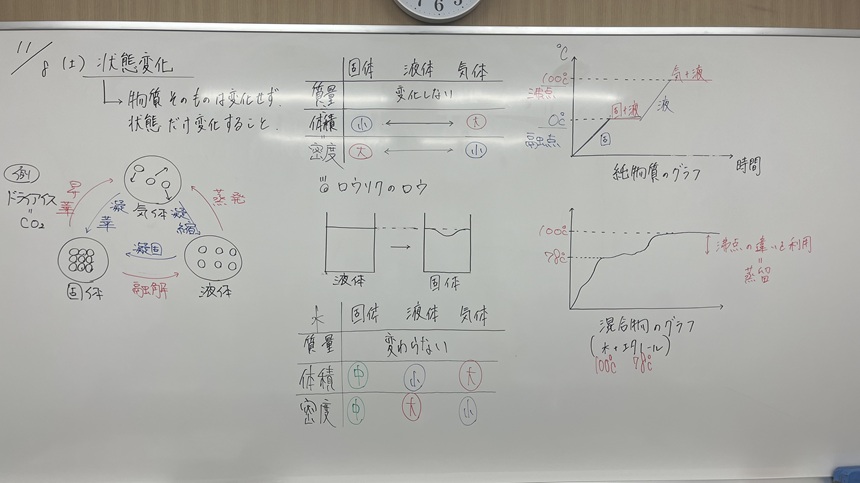 7 6 5
11/8 (1) 状態変化
→ 物質そのものは変化せず.
状態だけ変化すること.
例
ドライアイス
=
CO2
昇華
凝華
気体
凝縮
蒸発
凝固
固体
融解
液体
固体 液体 気体
質量 変化しない
体積 小 ←→ 大
密度 大 ←→ 小
ロウソクのロウ
液体 → 固体
水 固体 液体 気体
質量 変わらない
体積 中 小 大
密度 中 大 小
℃
100℃
沸点
気+液
液
0℃
融点
固+液
固
時間
純物質のグラフ
100℃
78℃
沸点の違いを利用
=
蒸留
混合物のグラフ
(水+エタノール)
100℃ 78℃